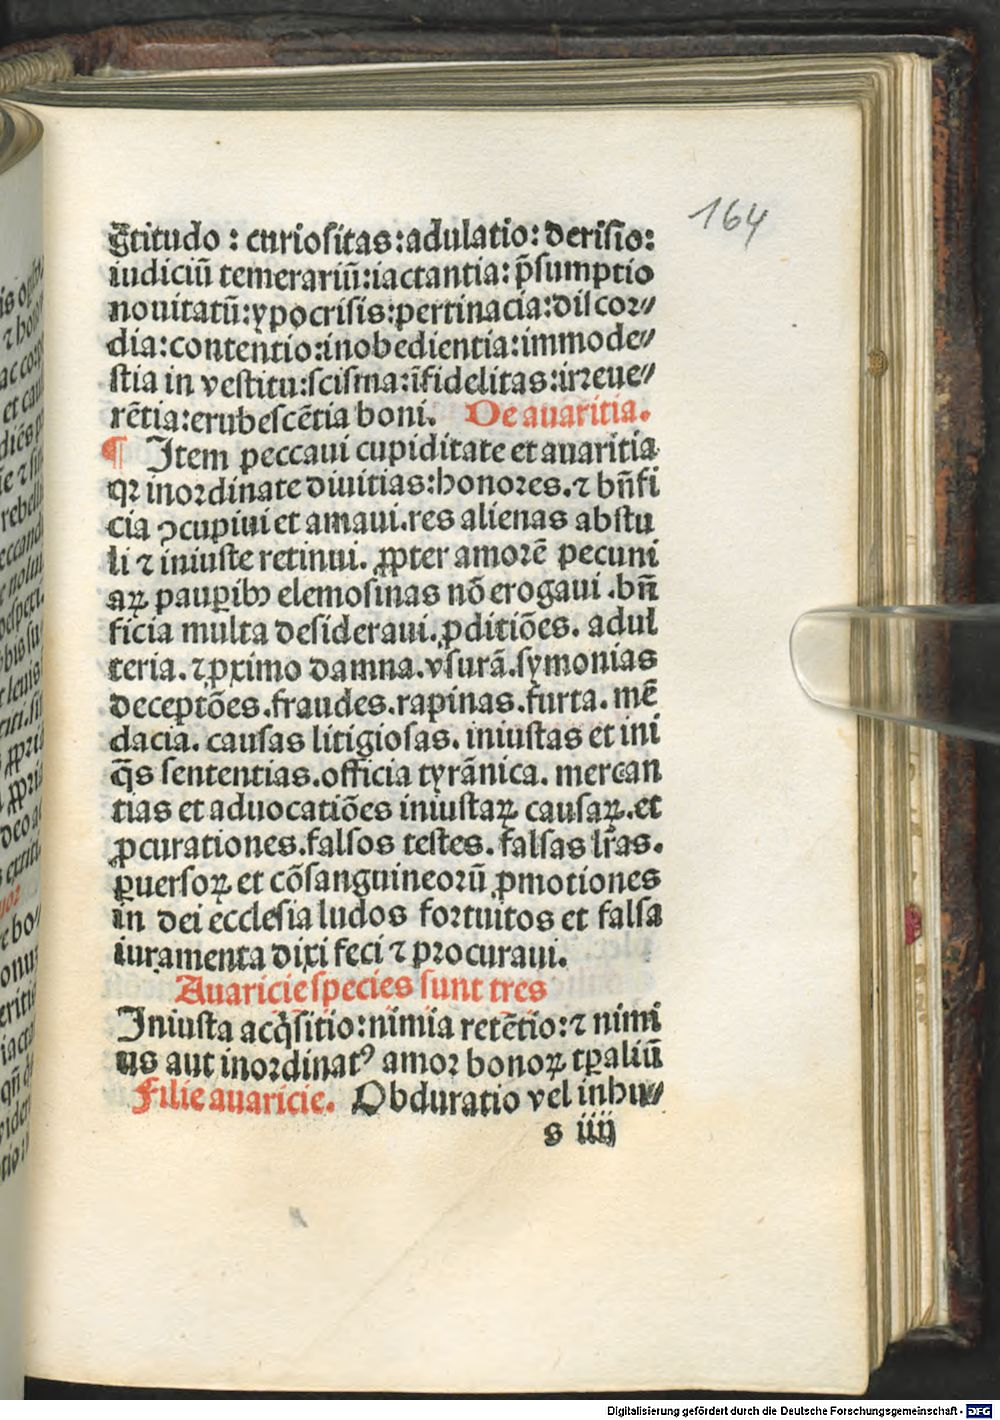 164
g̃titudo : curiositas:adulatio: derisio:
iudiciũ temerariũ:iactantia: p̃sumptio
nouitatũ:ypocrisis:pertinacia:discor⸗
dia:contentio:inobedientia:immode⸗
stia in vestitu:scisma:ĩfidelitas:irreue⸗
rẽtia:erubescẽtia boni. De auaritia.
¶ Item peccaui cupiditate et auaritia
qꝛ inordinate diuitias:honores.⁊ bñfi
cia ꝯcupiui et amaui.res alienas abstu
li ⁊ iniuste retinui. ꝓpter amorẽ pecuni
aꝝ pauꝑibꝰ elemosinas nõ erogaui .bñ
ficia multa desideraui.ꝓditiões. adul
teria.⁊ ꝓximo damna.vsurã.symonias
deceptões.fraudes.rapinas.furta. mẽ
dacia. causas litigiosas. iniustas et ini
q̃s sententias.officia tyrãnica. mercan
tias et aduocatiões iniustaꝝ causaꝝ.et
ꝓcurationes.falsos testes. falsas lr̃as.
ꝑuersoꝝ et cõsanguineorũ ꝓmotiones
in dei ecclesia ludos fortuitos et falsa
iuramenta dixi feci ⁊ procuraui.
Auaricie species sunt tres
Iniusta acq̇sitio:nimia retẽtio:⁊ nimi
us aut inordinatꝰ amor bonoꝝ tꝑaliũ
Filie auaricie. Obduratio vel inhu⸗
s iiij
Digitalisierung gefördert durch die Deutsche Forschungsgemeinschaft - DFG